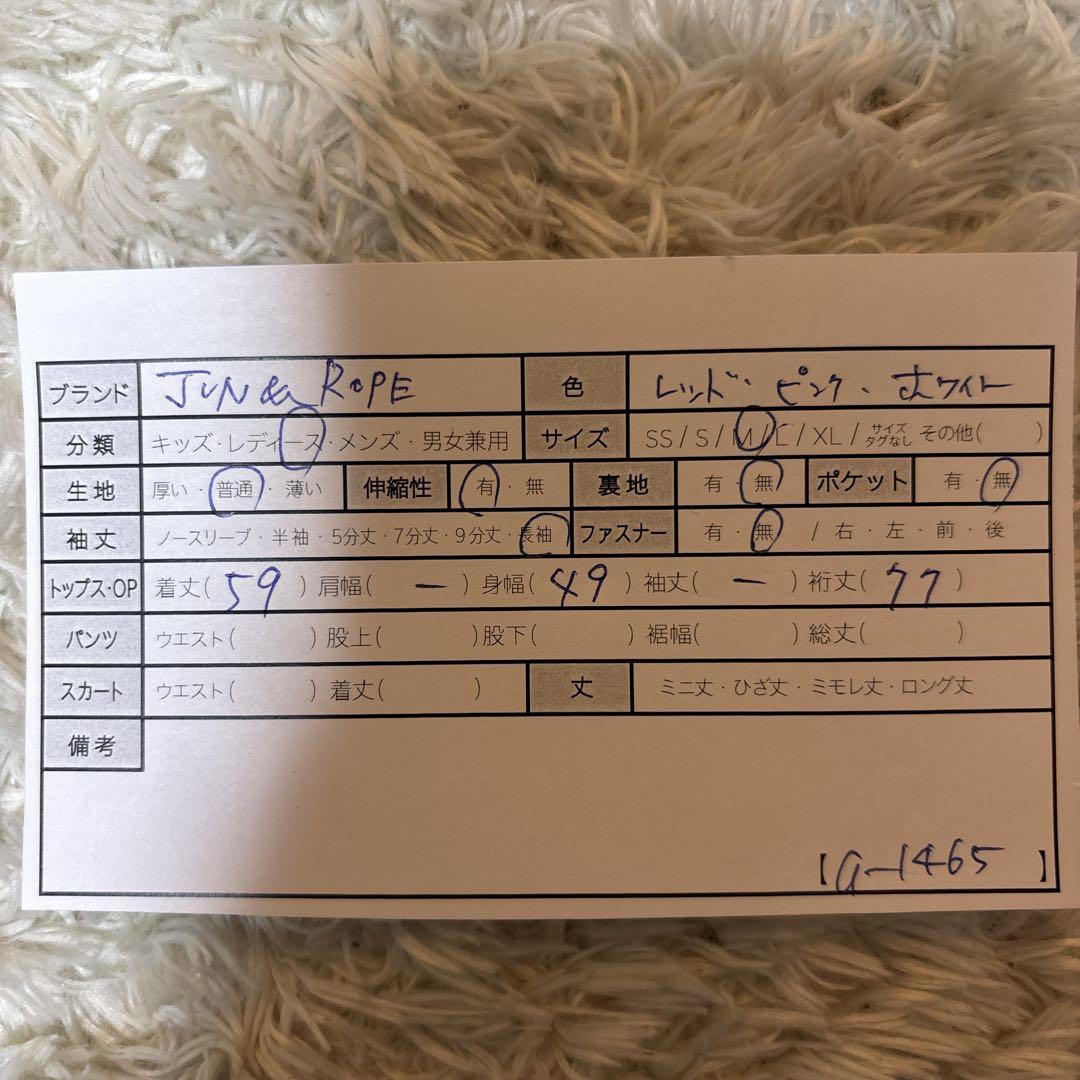 ブランド JUN & ROPE 色 レッド・ピンク・ホワイト
分類 キッズ・レディース・メンズ・男女兼用 サイズ SS / S / M / L / XL / サイズタグなし その他( )
生地 厚い・普通・薄い 伸縮性 有・無 裏地 有・無 ポケット 有・無
袖丈 ノースリーブ・半袖・5分丈・7分丈・9分丈・長袖 ファスナー 有・無 / 右・左・前・後
トップス・OP 着丈( 59 ) 肩幅( ー ) 身幅( 49 ) 袖丈( ー ) 裄丈( 77 )
パンツ ウエスト( ) 股上( ) 股下( ) 裾幅( ) 総丈( )
スカート ウエスト( ) 着丈( ) 丈 ミニ丈・ひざ丈・ミモレ丈・ロング丈
備考
【a-1465】